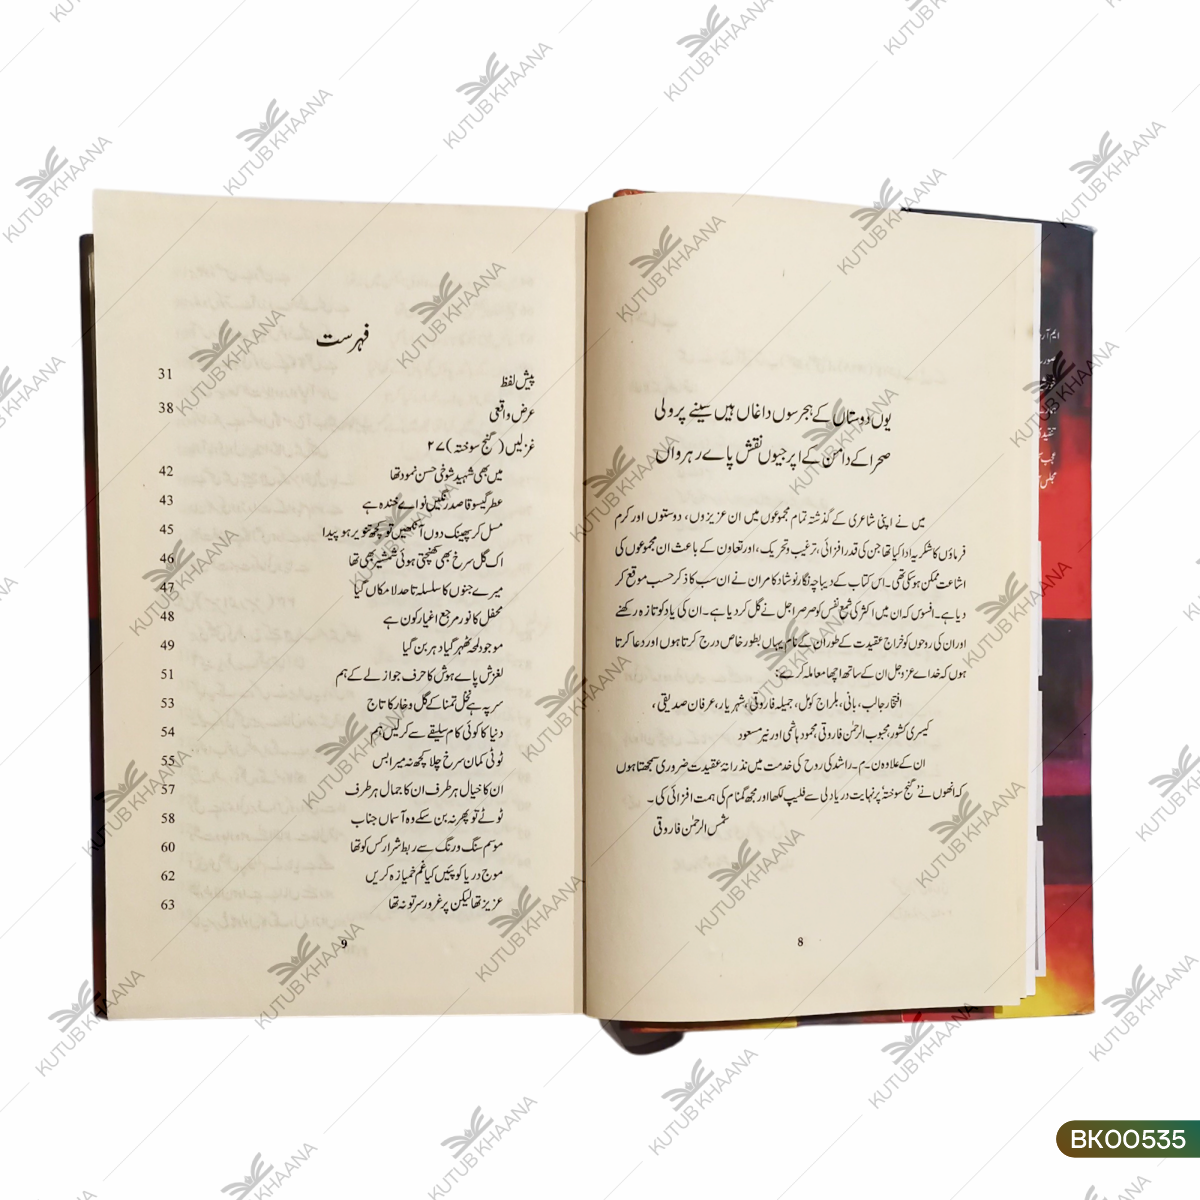 یوں دوستاں کے ہجر سوں داغاں ہیں سینے پر ولی
صحرا کے دامن کے اپر جیوں نقش پاے رہرواں
میں نے اپنی شاعری کے گذشتہ تمام مجموعوں میں ان عزیزوں، دوستوں اور کرم
فرماؤں کا شکریہ ادا کیا تھا جن کی قدر افزائی، ترغیب و تحریک، اور تعاون کے باعث ان مجموعوں کی
اشاعت ممکن ہو سکی تھی۔ اس کتاب کے دیباچہ نگار نوشاد کامران نے ان سب کا ذکر حسب موقع کر
دیا ہے۔ افسوس کہ ان میں اکثر کی شمع نفس کو صرصر اجل نے گل کر دیا ہے۔ ان کی یاد کو تازہ رکھنے
اور ان کی روحوں کو خراج عقیدت کے طور ان کے نام یہاں بطور خاص درج کرتا ہوں اور دعا کرتا
ہوں کہ خداے عز و جل ان کے ساتھ اچھا معاملہ کرے:
افتخار جالب، بانی، بلراج کومل، جمیلہ فاروقی، شہریار، عرفان صدیقی،
کیسری کشور، محبوب الرحمٰن فاروقی، محمود ہاشمی اور نیر مسعود
ان کے علاوہ ن۔م۔ راشد کی روح کی خدمت میں نذرانۂ عقیدت ضروری سمجھتا ہوں
کہ انھوں نے "گنج سوختہ" پر نہایت دریا دلی سے فلیپ لکھا اور مجھ گمنام کی ہمت افزائی کی۔
شمس الرحمٰن فاروقی
8
فہرست
پیش لفظ 31
عرض واقعی 38
غزلیں (گنج سوختہ) ۲۷
میں بھی شہید شوخی حسن نمود تھا 42
عطر گیسو قاصد رنگیں نواے خندہ ہے 43
مسل کر پھینک دوں آنکھیں تو کچھ تنویر ہو پیدا 45
اک گل سرخ بھی کھنچتی ہوئی شمشیر بھی تھا 46
میرے جنوں کا سلسلہ تا حد لامکاں گیا 47
محفل کا نور مرجع اغیار کون ہے 48
موجود لمحہ ٹھہر گیا دہر بن گیا 49
لغزش پاے ہوش کا حرف جواز لے کے ہم 51
سر پہ ہے نخل تمنا کے گل و خار کا تاج 53
دنیا کا کوئی کام سلیقے سے کر لیں ہم 54
ٹوٹی کمان سرخ چلا کچھ نہ میرا بس 55
ان کا خیال ہر طرف ان کا جمال ہر طرف 57
ٹوٹے تو پھر نہ بن سکے وہ آسماں جناب 58
موسم سنگ و رنگ سے ربط شرار کس کو تھا 60
موج دریا کو پئیں کیا غم خمیازہ کریں 62
عزیز تھا لیکن پر غرور سر تو نہ تھا 63
9
ایم آر
تنقید
مجلس
KUTUB KHAANA
BK00535